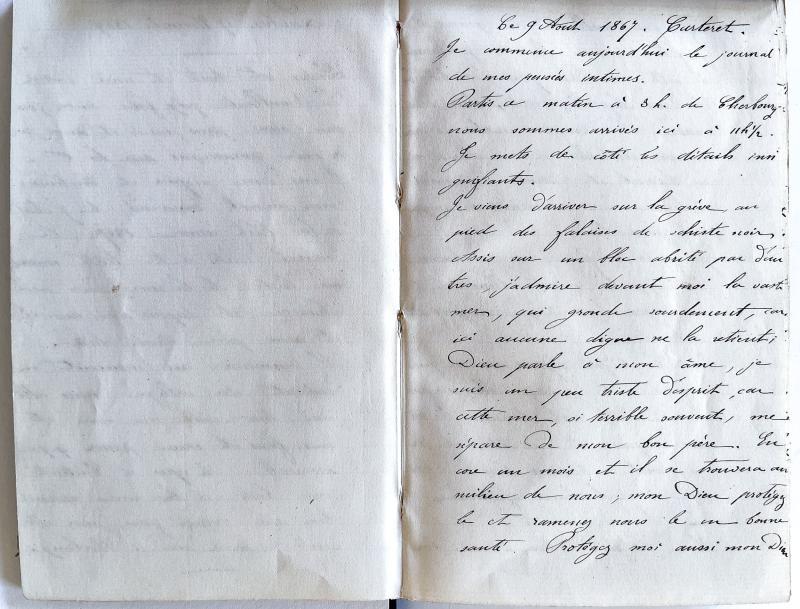 Ce 9 Août 1867. Carteret.
Je commence aujourd'hui le journal
de mes pensées intimes.
Partis ce matin à 8 h. de Cherbourg
nous sommes arrivés ici à 11h½.
Je mets de côté les détails insi
gnifiants.
Je viens d'arriver sur la grève au
pied des falaises de schiste noir.
Assis sur un bloc abrité par d'au
tres, j'admire devant moi la vaste
mer, qui gronde sourdement, car
ici aucune digue ne la retient;
Dieu parle à mon âme, je
suis un peu triste d'esprit, car
cette mer, si terrible souvent, me
sépare de mon bon père. En
core un mois et il se trouvera au
milieu de nous; mon Dieu protégez
le et ramenez nous le en bonne
santé. Protégez moi aussi mon Dieu